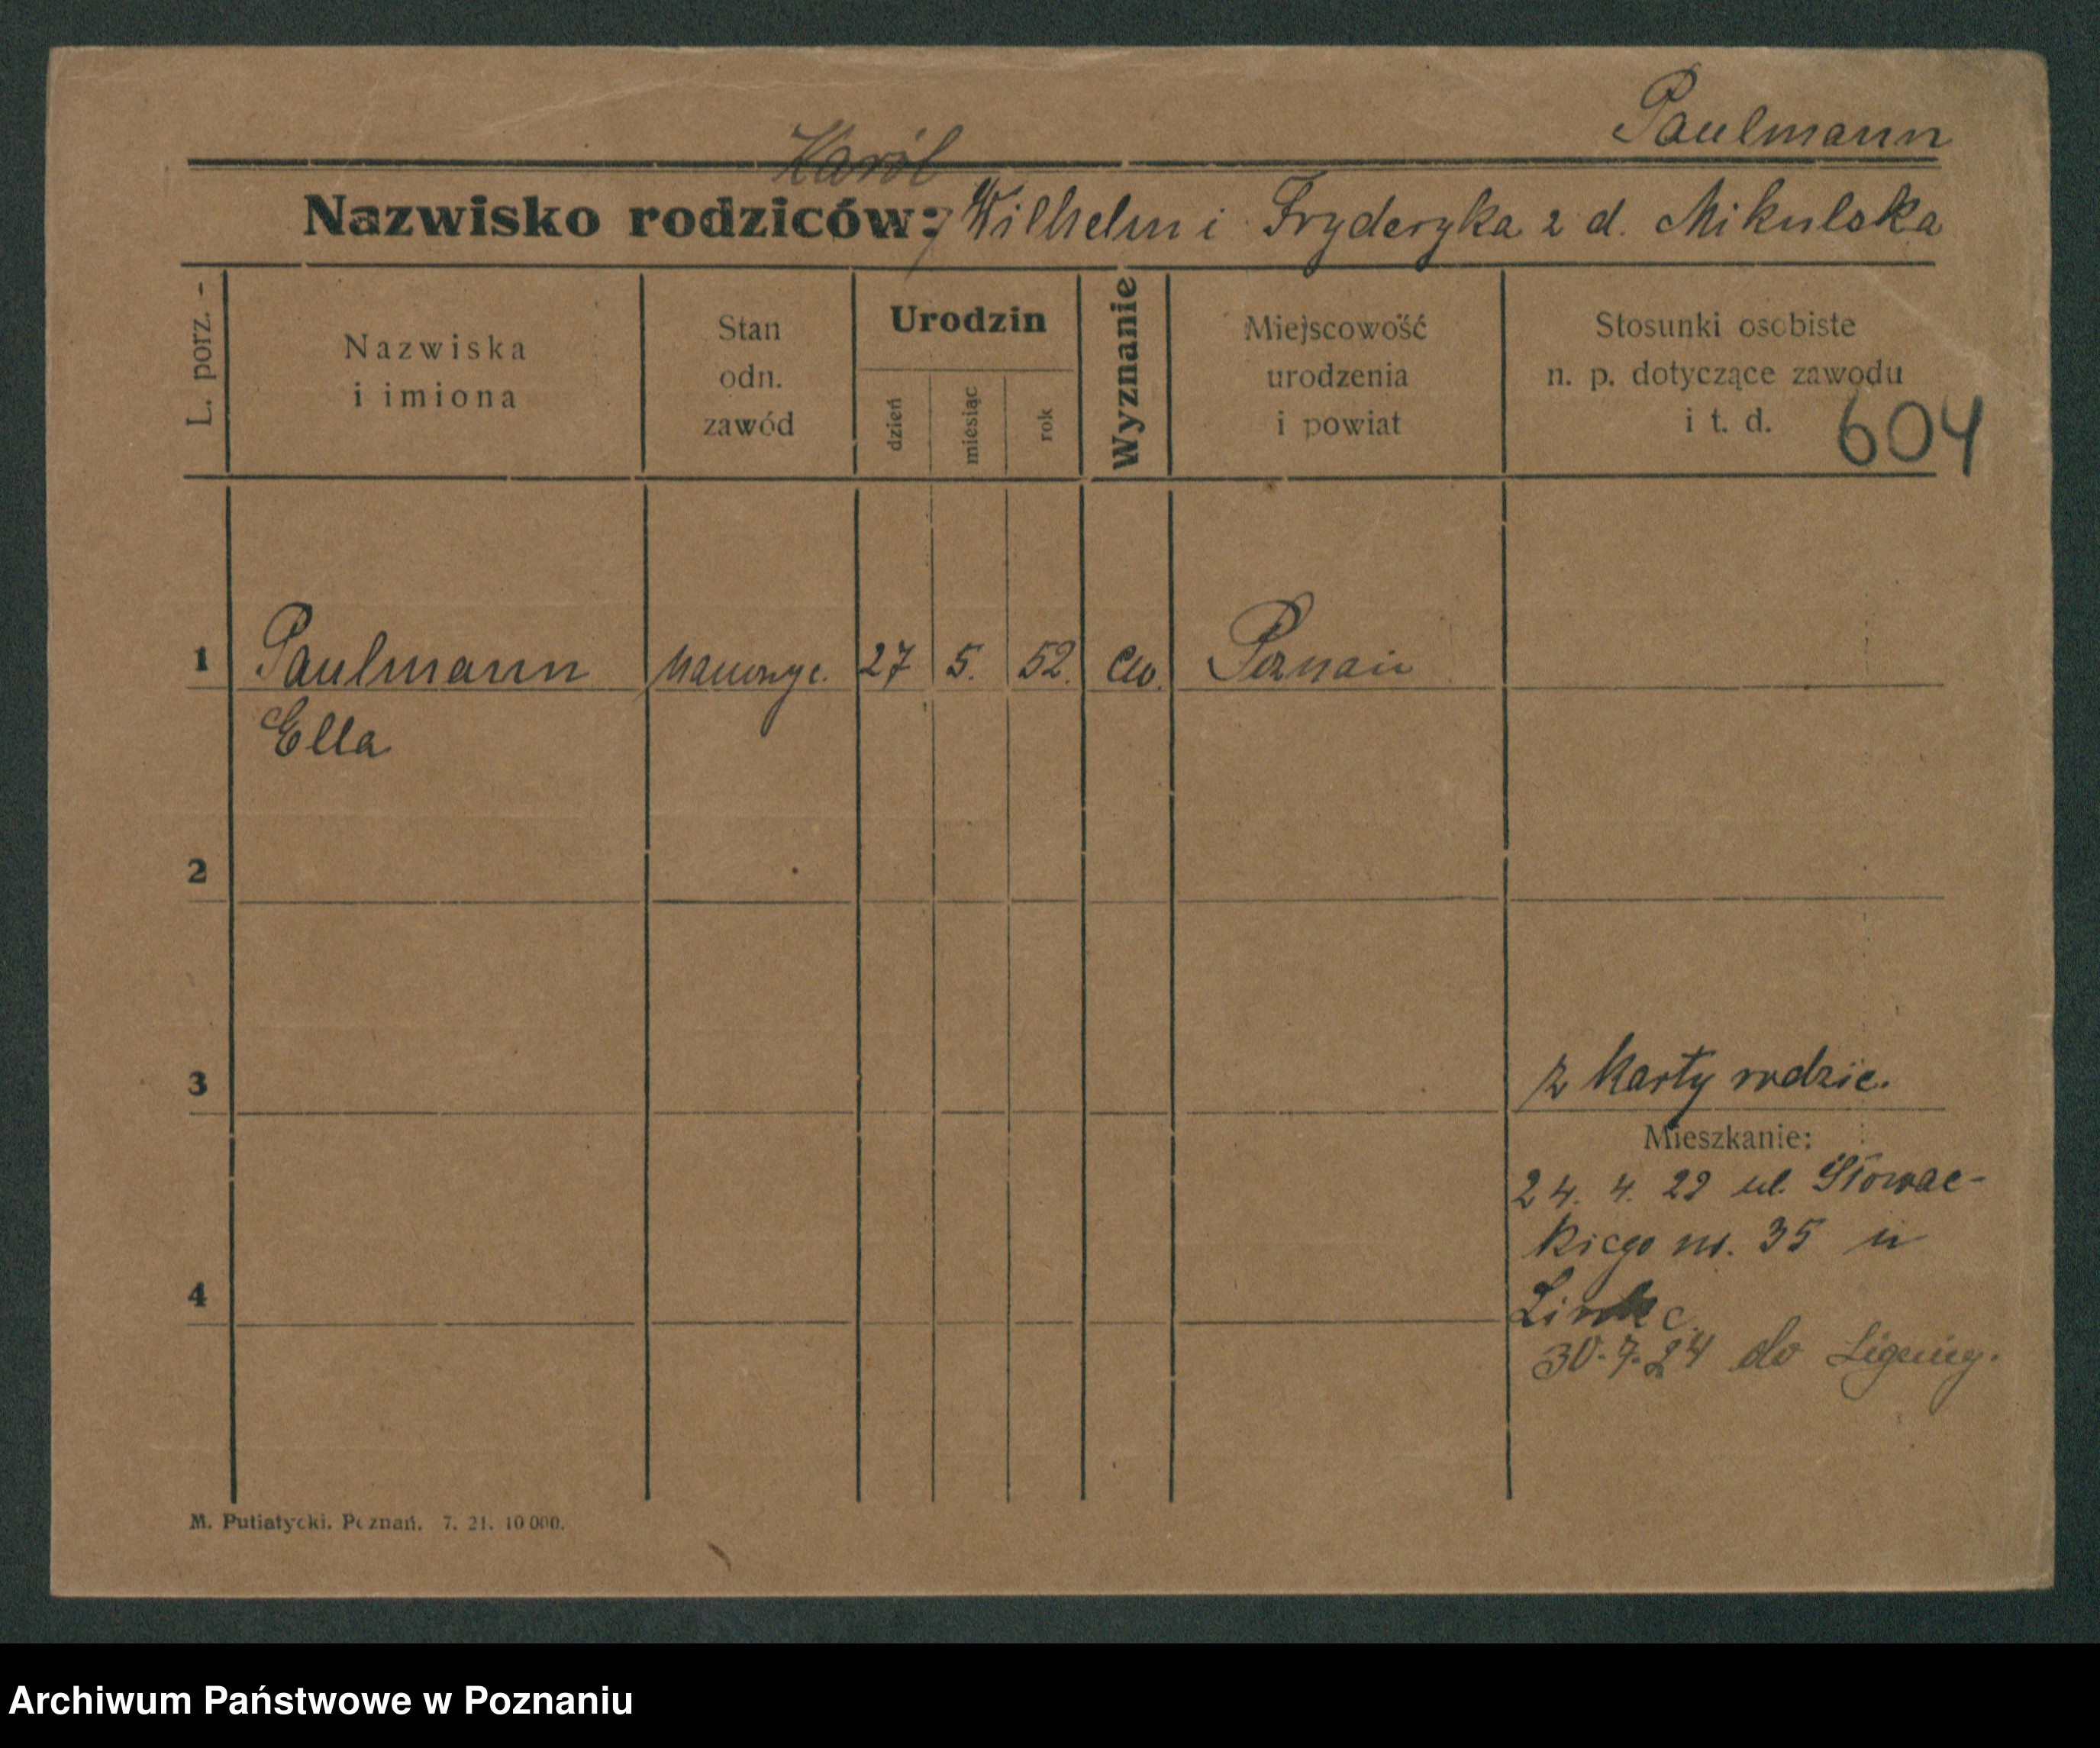 Paulmann
Karól
Nazwisko rodziców: Wilhelm i Fryderyka z d. Mikulska
L. porz.
Nazwiska
i imiona
Stan
odn.
zawód
Urodzin
dzień
miesiąc
rok
Wyznanie
Miejscowość
urodzenia
i powiat
Stosunki osobiste
n. p. dotyczące zawodu
i t. d.
604
1 Paulmann 27 5. 52. ew. Poznań
Ella
2
3
z karty rodzic.
Mieszkanie:
24. 4. 22 ul. Słowac-
kiego nr. 35 u
4
30.7.24 do Lignicy.
M. Putiatycki. Poznań. 7. 21. 10 000.
Archiwum Państwowe w Poznaniu